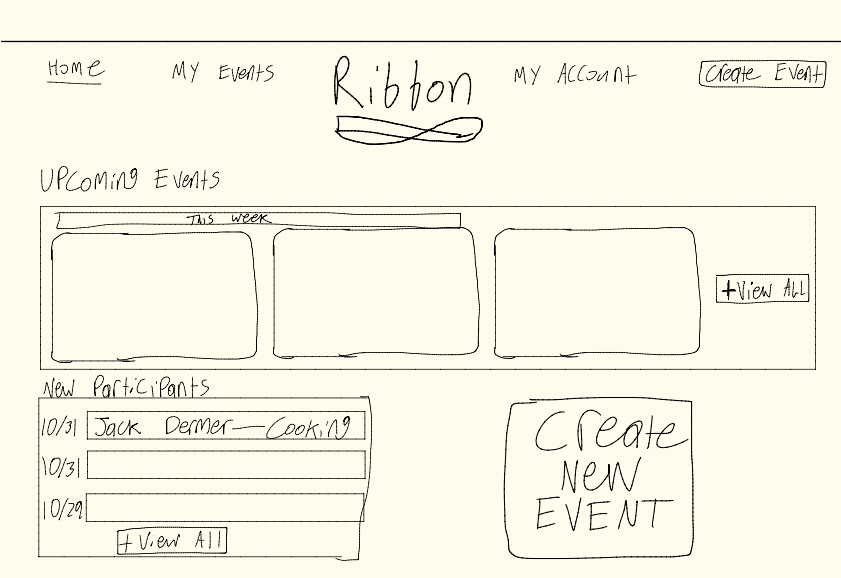 Home
My Events
Ribbon
My Account
Create Event
Upcoming Events
This week
+View All
New Participants
10/31 Jack Dermer — Cooking
10/31
10/29
+View All
Create
New
EVENT